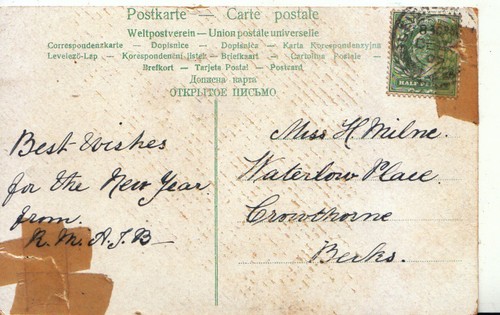 Postkarte — Carte postale
Weltpostverein — Union postale universelle
Correspondenzkarte — Dopisnice — Dopisnica — Karta Korespondencyjna
Levelező-Lap — Korespondenční lístek — Briefkaart — Cartolina Postale —
Brefkort — Tarjeta Postal — Postcard
Дописна карта
ОТКРЫТОЕ ПИСЬМО
HALF
Best Wishes
for the New Year
from.
R. M. A. J. B—
Miss H. Milne.
Waterlow Place.
Crowthorne
Berks.